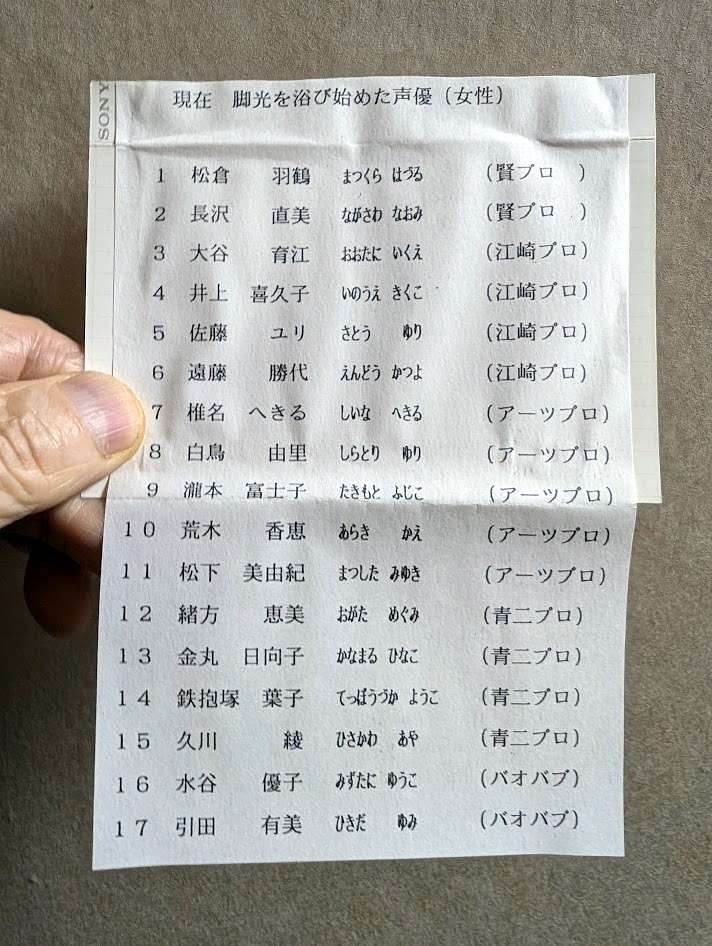 SONY
現在　脚光を浴び始めた声優（女性）
1　松倉　羽鶴　まつくら はづる　（賢プロ　）
2　長沢　直美　ながさわ なおみ　（賢プロ　）
3　大谷　育江　おおたに いくえ　（江崎プロ）
4　井上　喜久子　いのうえ きくこ　（江崎プロ）
5　佐藤　ユリ　さとう　ゆり　（江崎プロ）
6　遠藤　勝代　えんどう かつよ　（江崎プロ）
7　椎名　へきる　しいな　へきる　（アーツプロ）
8　白鳥　由里　しらとり　ゆり　（アーツプロ）
9　瀧本　富士子　たきもと ふじこ　（アーツプロ）
10　荒木　香恵　あらき　かえ　（アーツプロ）
11　松下　美由紀　まつした みゆき　（アーツプロ）
12　緒方　恵美　おがた　めぐみ　（青二プロ）
13　金丸　日向子　かなまる ひなこ　（青二プロ）
14　鉄抱塚　葉子　てっぽうづか ようこ　（青二プロ）
15　久川　綾　ひさかわ　あや　（青二プロ）
16　水谷　優子　みずたに ゆうこ　（バオバブ）
17　引田　有美　ひきだ　ゆみ　（バオバブ）